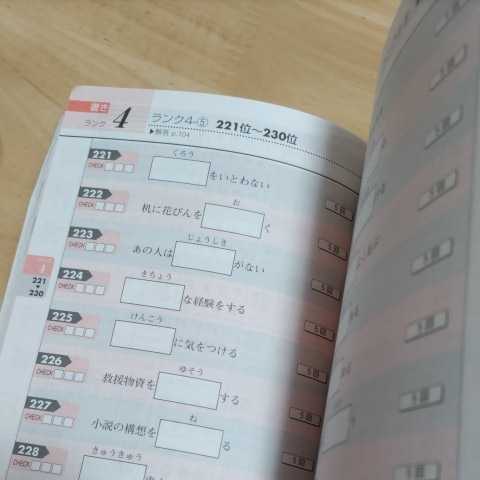 書き
ランク 4
ランク4-⑤ 221位~230位
▶解答 p.104
221 CHECK くろう をいとわない
222 CHECK 机に花びんを お く 5回
223 CHECK あの人は じょうしき がない 5回
224 CHECK きちょう な経験をする 5回
225 CHECK けんこう に気をつける 5回
226 CHECK 救援物資を ゆそう する 5回
227 CHECK 小説の構想を ね る 5回
228 CHECK きゅうきゅう 5回
4
221
▼
230